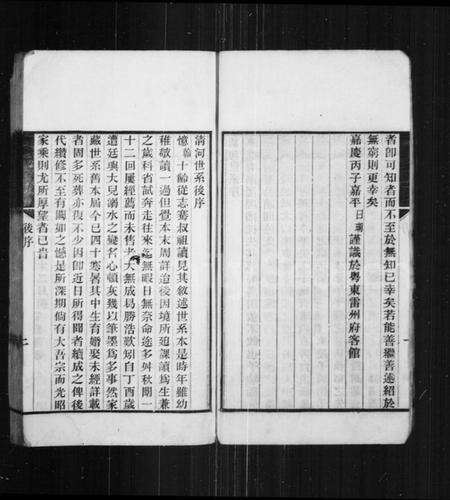 者卽可知者而不至於無知已幸矣若能善繼善述紹於
無窮則更幸矣
嘉慶丙子嘉平日謹識於粵東雷州府客館
清河世系後序
憶十齡從志騫叔祖讀見其敘述世系本是時年雖幼
稚敬讀一過但覺本末周詳迨後因境所迫課讀爲生兼
之歲科省試奔走往來迄無暇日無奈命途多舛秋闈一
十二回屢經薦而未售老大無成曷勝浩歎矧自丁酉歲
遭廷與大兒溺水之變名心頓灰幾以筆墨爲多事然家
藏世系舊本屆今已四十寒暑其中生育婚娶未經詳載
者固多死葬亦復不少因卽近日所得聞者續成之俾後
代纘修不至有闕如之憾是所深期倘有大吾宗而光昭
家乘則尤所厚望者已
後序
一
二